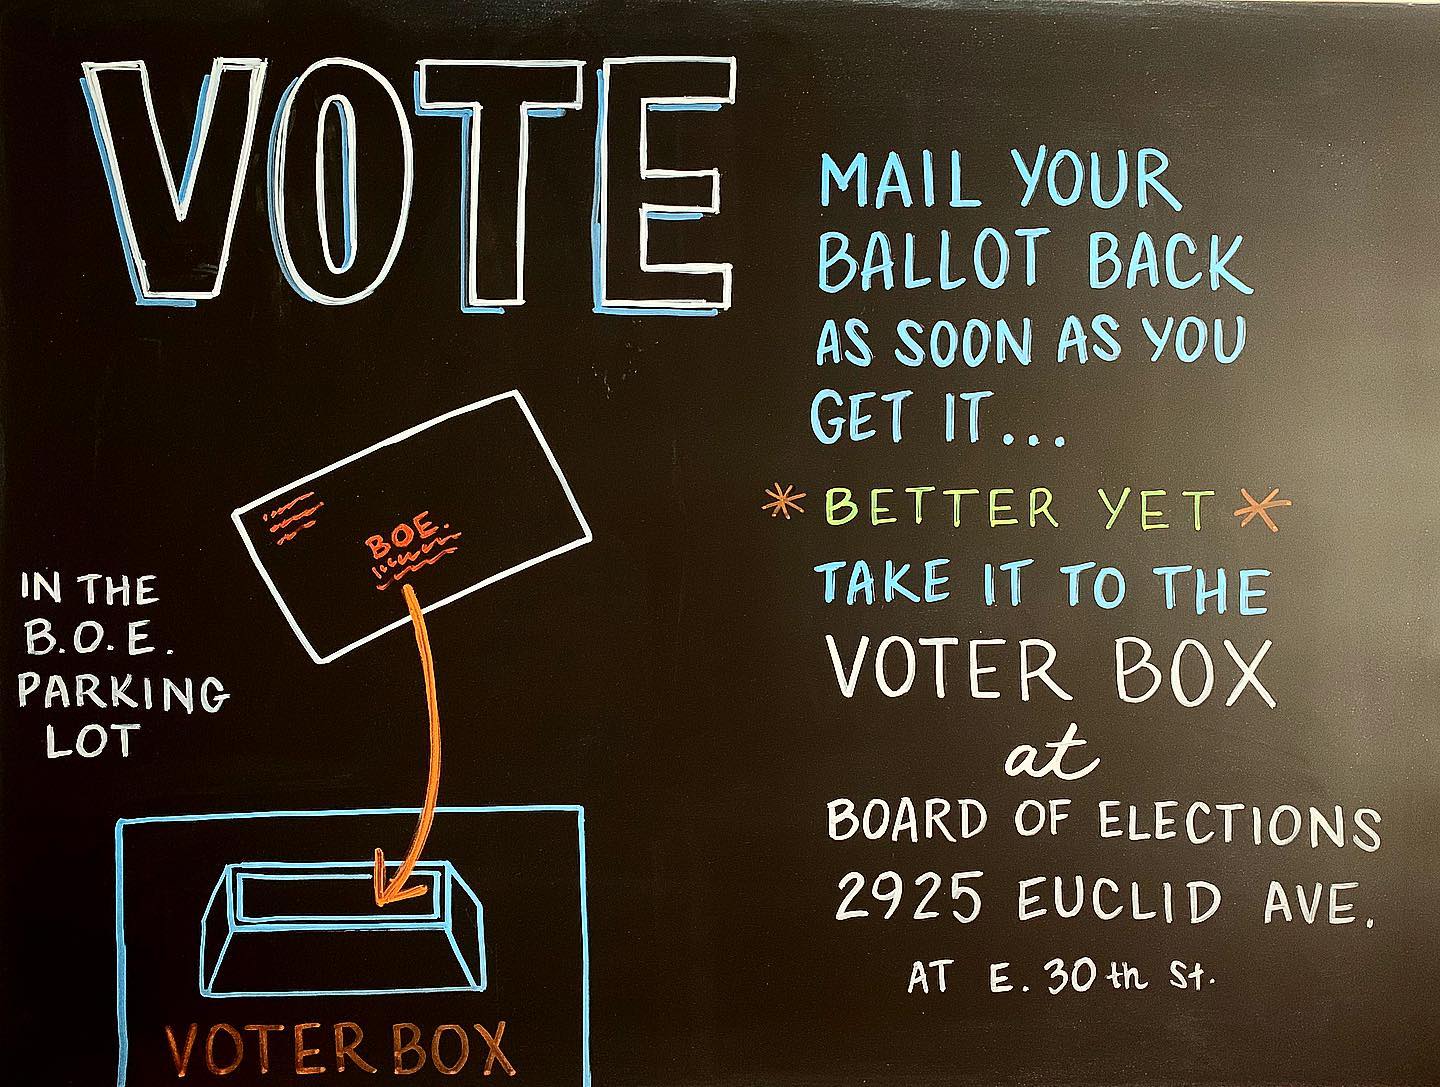 VOTE
MAIL YOUR
BALLOT BACK
AS SOON AS YOU
GET IT...
* BETTER YET *
TAKE IT TO THE
VOTER BOX
at
BOARD OF ELECTIONS
2925 EUCLID AVE.
AT E. 30th St.
BOE.
IN THE
B.O.E.
PARKING
LOT
VOTER BOX